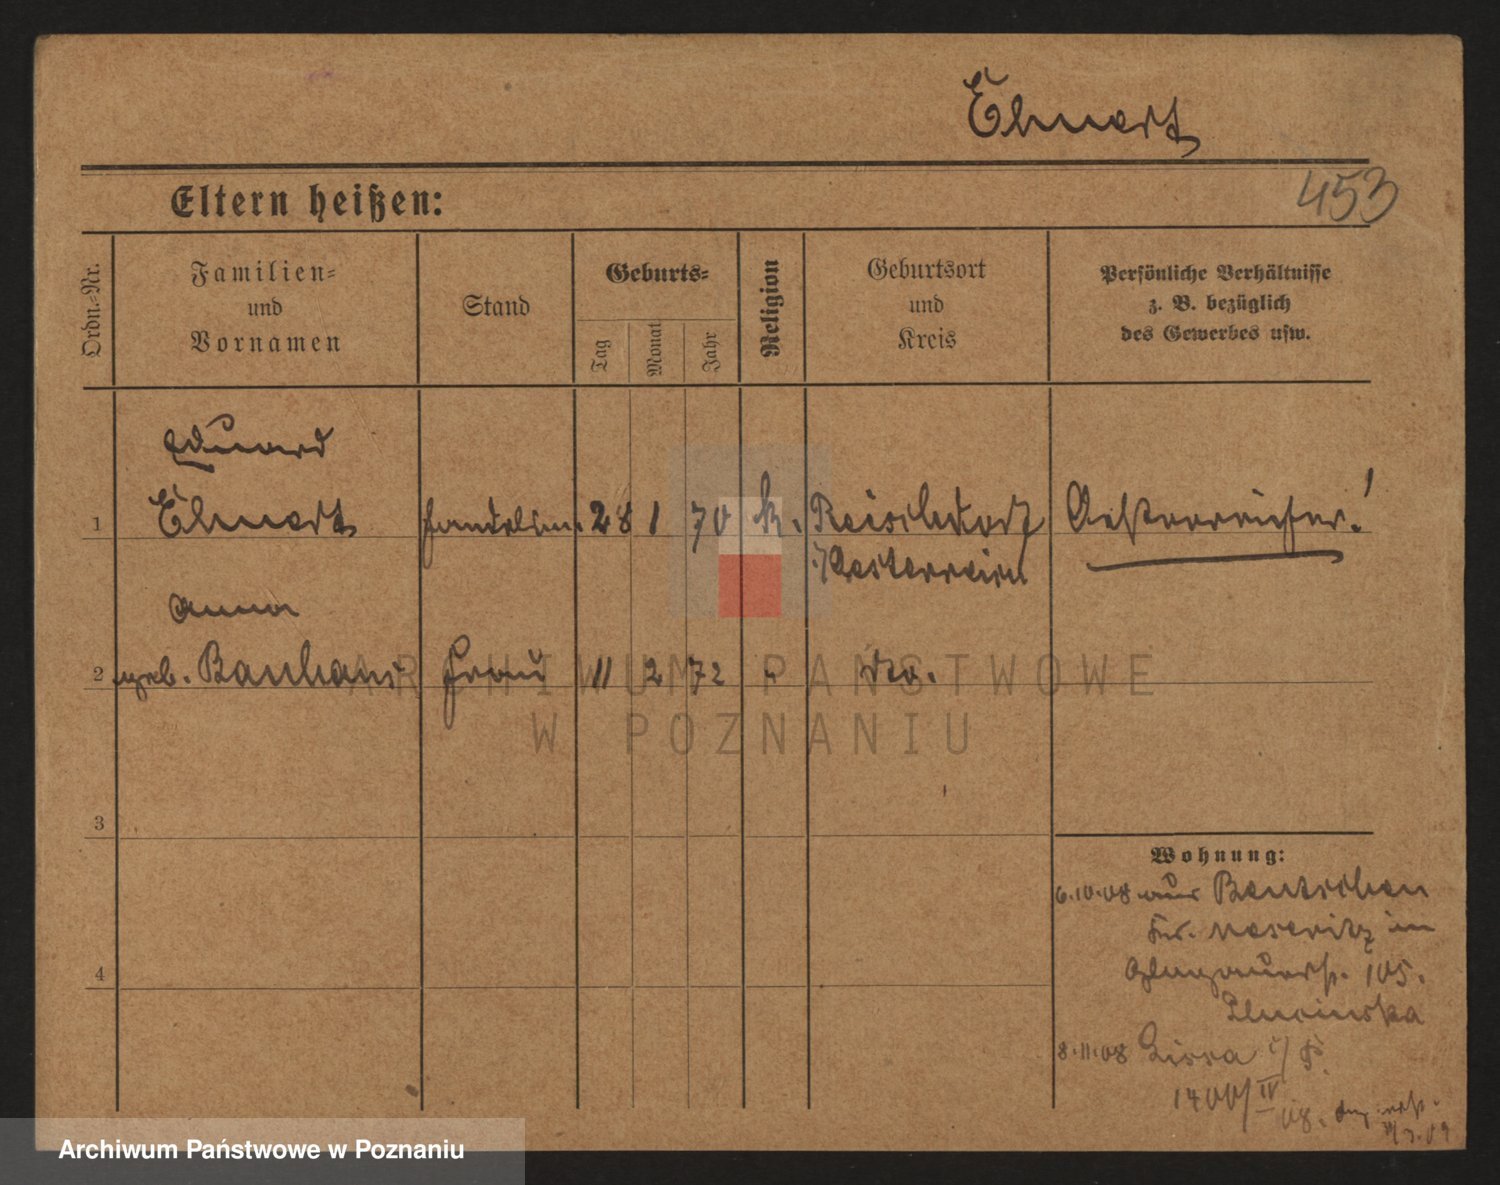 Elmert
453
Eltern heißen:
Ordn.-Nr.
Familien-
und
Vornamen
Stand
Geburts-
Tag
Monat
Jahr
Religion
Geburtsort
und
Kreis
Persönliche Verhältnisse
z. B. bezüglich
des Gewerbes usw.
Eduard
1 Elmert Handelsm. 28 1 70 k. Reischdorf Oesterreicher!
i/Oesterreich
Anna
2 geb. Bauhans Frau 11 2 72 " do.
ARCHIWUM PAŃSTWOWE
W POZNANIU
3
Wohnung:
6.10.08 aus Bentschen
Kr. Meseritz in
Glogauerst. 105.
4
8.11.08 Lissa i/P.
1400/IV 08.
Archiwum Państwowe w Poznaniu